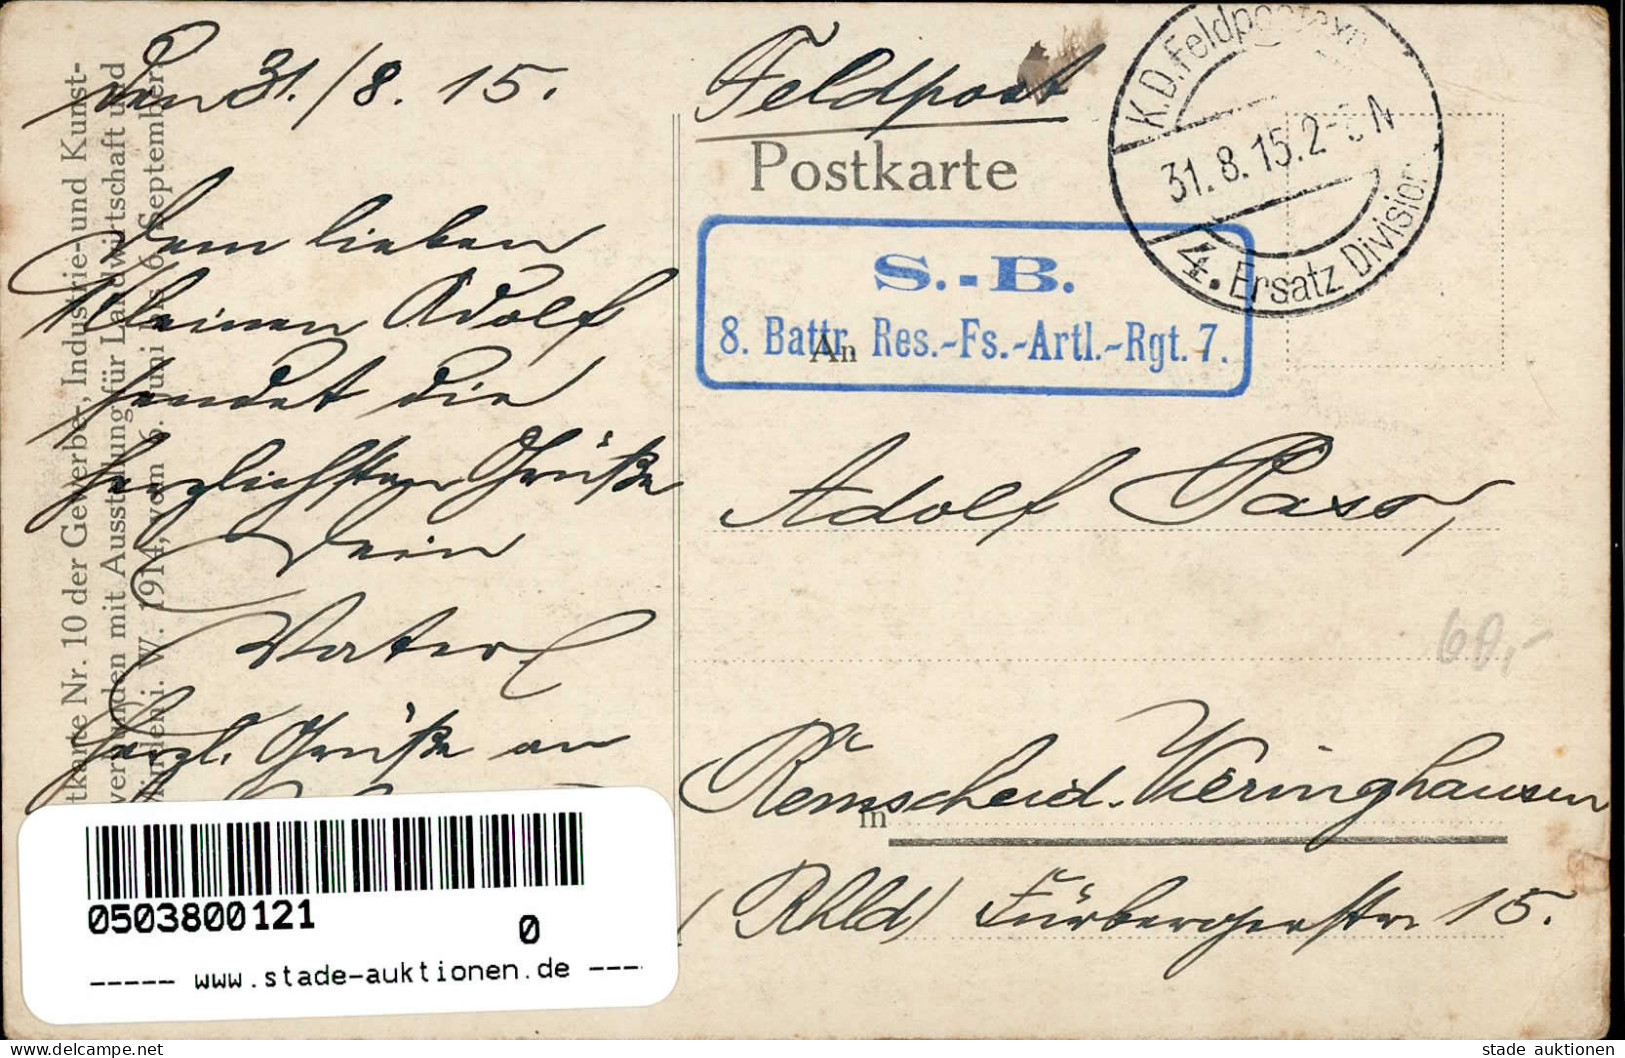 Den 31./8. 15.
Dem lieben
kleinen Adolf
sendet die
herzlichsten Grüße
Dein
Vater
Herzl. Grüße an
tkarte Nr. 10 der Gewerbe-, Industrie- und Kunst-
verbunden mit Ausstellung für Landwirtschaft und
Minden i. W. 1914, vom 6. Juni bis 6. September
Feldpost
Postkarte
K.D. Feldpostexp
31.8.15.2-3 N
4. Ersatz Division
S.-B.
8. Battr. Res.-Fs.-Artl.-Rgt. 7.
An
Adolf Pass,
60,-
in Remscheid. Vieringhausen
(Rhld) Fürbergerstr 15.
0503800121
0
----- www.stade-auktionen.de ----
www.delcampe.net
stade auktionen